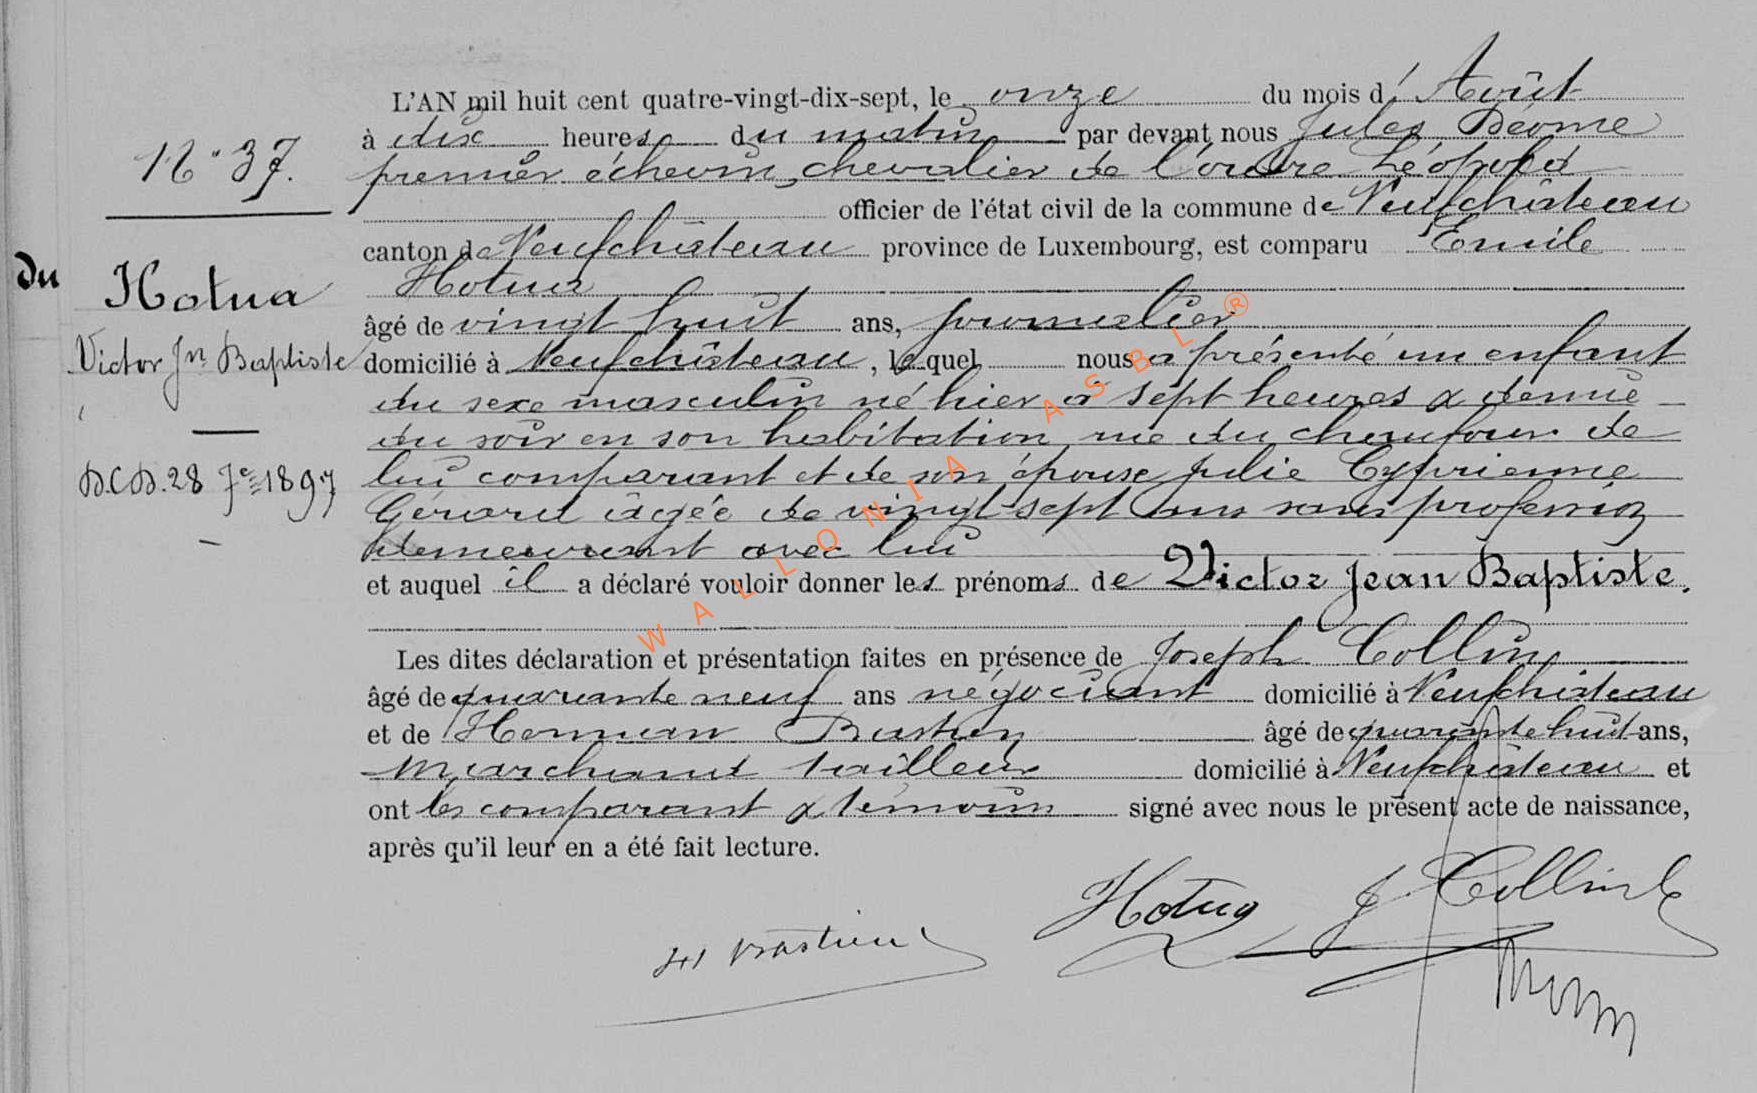 L'AN mil huit cent quatre-vingt-dix-sept, le onze du mois d' Août
à dix heures du matin par devant nous Jules
premier échevin, chevalier de l'ordre Léopold
officier de l'état civil de la commune de Neufchâteau
canton de Neufchâteau province de Luxembourg, est comparu Emile
Hotua
âgé de vingt huit ans, journalier
domicilié à Neufchâteau, lequel nous a présenté un enfant
du sexe masculin né hier à sept heures & demie
du soir en son habitation rue du chaufour de
lui comparant et de son épouse Julie Cyprienne
Gérard âgée de vingt sept ans sans profession
demeurant avec lui
et auquel il a déclaré vouloir donner les prénoms de Victor Jean Baptiste.
Les dites déclaration et présentation faites en présence de Joseph Collin
âgé de quarante neuf ans négociant domicilié à Neufchâteau
et de Herman Bastien âgé de quarante huit ans,
marchand tailleur domicilié à Neufchâteau et
ont les comparant & témoins signé avec nous le présent acte de naissance,
après qu'il leur en a été fait lecture.
N° 37.
du
Hotua
Victor Jn Baptiste
D.C.D. 28 7e 1897
Hotua J Collin
H Bastien
WALLONIA ASBL ®